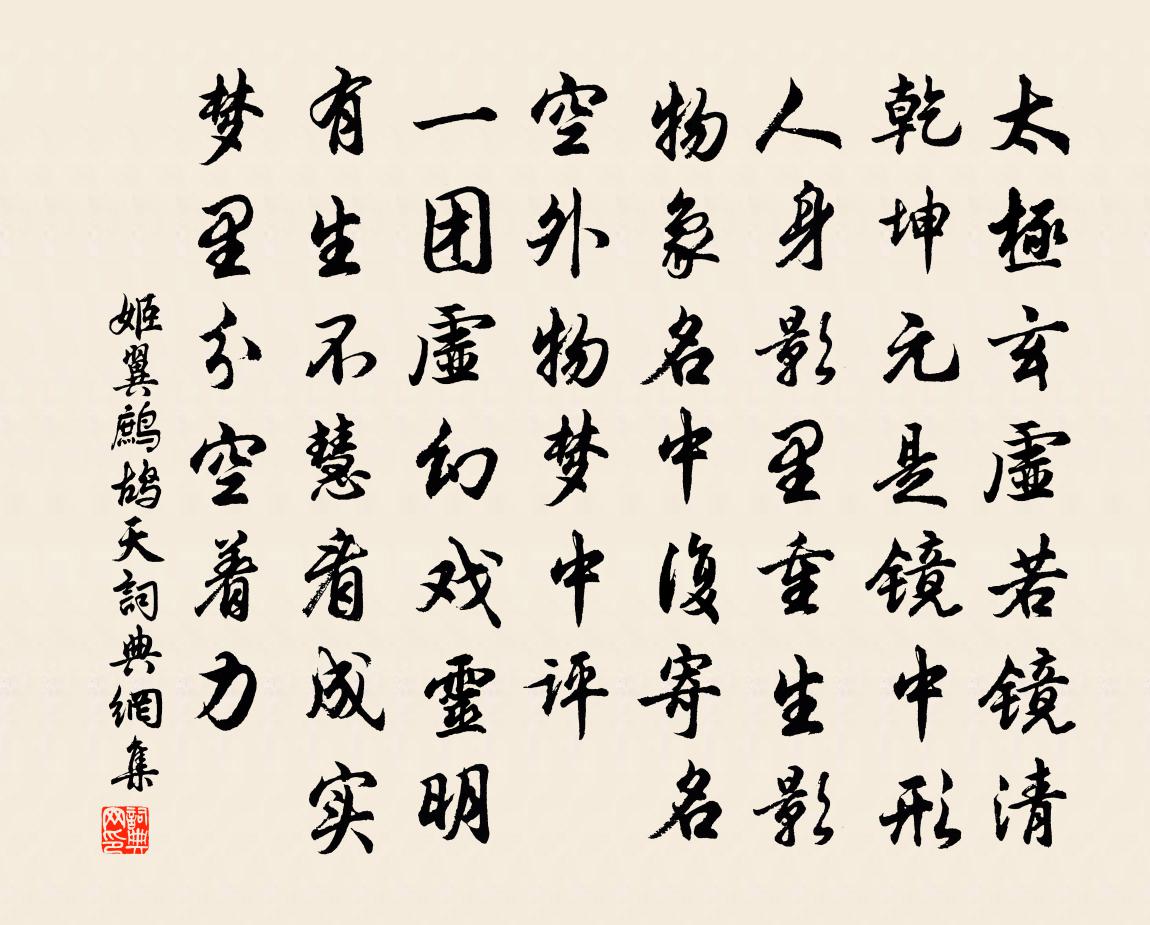 太極玄虛若镜清
乾坤元是镜中形
人身影里重生影
物象名中復寄名
空外物梦中评
一团虛幻戏靈明
有生不慧看成实
梦里分空着力
姬翼鷓鴣天詞典網集
詞典
网印